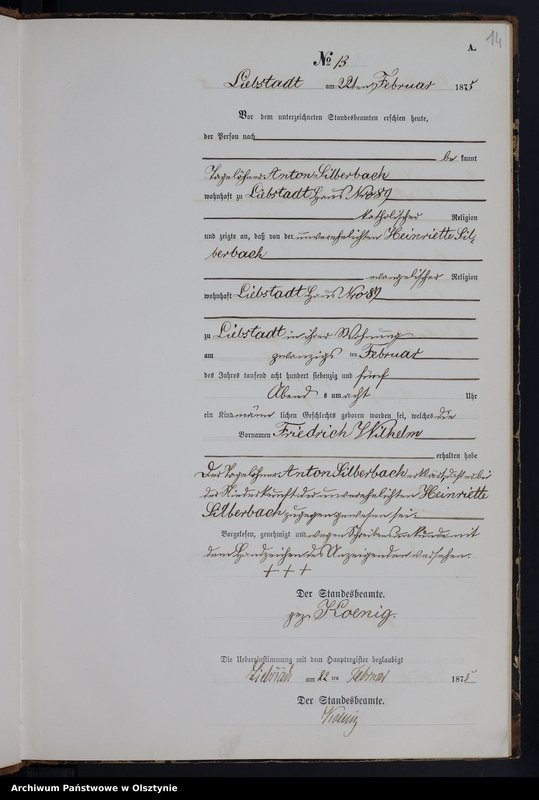 14
A.
No 13
Liebstadt am 22ten Februar 1875
Vor dem unterzeichneten Standesbeamten erschien heute,
der Person nach
be kannt
Tagelöhner Anton Silberbach
wohnhaft zu Liebstadt Haus No 89
katholischer Religion
und zeigte an, daß von der unverehelichten Heinriette Sil-
berbach
evangelischer Religion
wohnhaft Liebstadt Haus No 89
zu Liebstadt in ihrer Wohnung
am zwanzigs ten Februar
des Jahres tausend acht hundert siebenzig und fünf
Abend s um acht Uhr
ein Kind männ lichen Geschlechts geboren worden sei, welches die
Vornamen Friedrich Wilhelm
erhalten habe
Der Tagelöhner Anton Silberbach erklärt, daß er bei
der Niederkunft der unverehelichten Heinriette
Silberbach zugegen gewesen sei.
Vorgelesen, genehmigt und wegen Schreibensunkunde mit
dem Handzeichen des Anzeigenden versehen.
+ + +
Der Standesbeamte.
gez. Koenig.
Die Uebereinstimmung mit dem Hauptregister beglaubigt
Liebstadt am 22 ten Februar 1875
Der Standesbeamte.
Koenig
Archiwum Państwowe w Olsztynie